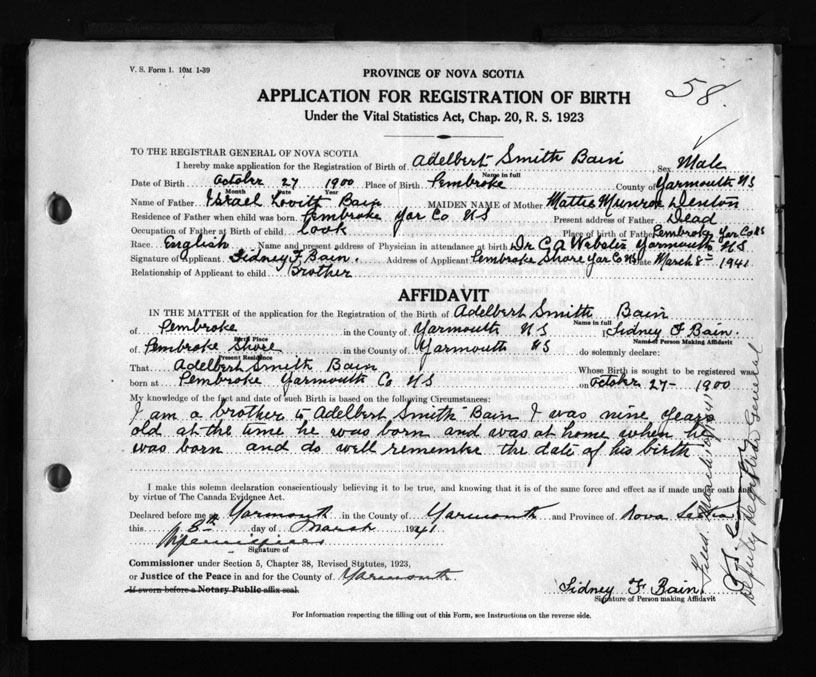 V. S. Form 1. 10M 1-39
PROVINCE OF NOVA SCOTIA
58.
APPLICATION FOR REGISTRATION OF BIRTH
Under the Vital Statistics Act, Chap. 20, R. S. 1923
TO THE REGISTRAR GENERAL OF NOVA SCOTIA
I hereby make application for the Registration of Birth of Adelbert Smith Bain Sex Male
Name in full
Date of Birth October 27 1900 Place of Birth Pembroke County of Yarmouth NS
Month Date Year
Name of Father Israel Lovitt Bain MAIDEN NAME of Mother Mattie Munroe Denton
Residence of Father when child was born. Pembroke Yar Co NS Present address of Father Dead
Occupation of Father at Birth of child Cook Place of birth of Father Pembroke Yar Co NS
Race. English Name and present address of Physician in attendance at birth Dr C A Webster Yarmouth NS
Signature of Applicant Sidney F Bain. Address of Applicant Pembroke Shore Yar Co NS Date March 8th 1941
Relationship of Applicant to child Brother
AFFIDAVIT
IN THE MATTER of the application for the Registration of the Birth of Adelbert Smith Bain
Name in full
of Pembroke in the County of Yarmouth NS I Sidney F Bain.
Birth Place Name of Person Making Affidavit
of Pembroke Shore in the County of Yarmouth NS do solemnly declare:
Present Residence
That Adelbert Smith Bain Whose Birth is sought to be registered was
born at Pembroke Yarmouth Co NS on October 27- 1900
My knowledge of the fact and date of such Birth is based on the following Circumstances:
I am a brother to Adelbert Smith Bain I was nine years
old at the time he was born and was at home when he
was born and do well remembe the date of his birth
I make this solemn declaration conscientiously believing it to be true, and knowing that it is of the same force and effect as if made under oath and
by virtue of The Canada Evidence Act.
Declared before me at Yarmouth in the County of Yarmouth and Province of Nova Scotia
this 8th day of March 1941
Signature of
Commissioner under Section 5, Chapter 38, Revised Statutes, 1923,
or Justice of the Peace in and for the County of Yarmouth.
if sworn before a Notary Public affix seal.
Sidney F Bain.
Signature of Person making Affidavit
For Information respecting the filling out of this Form, see Instructions on the reverse side.
Deputy Registrar General